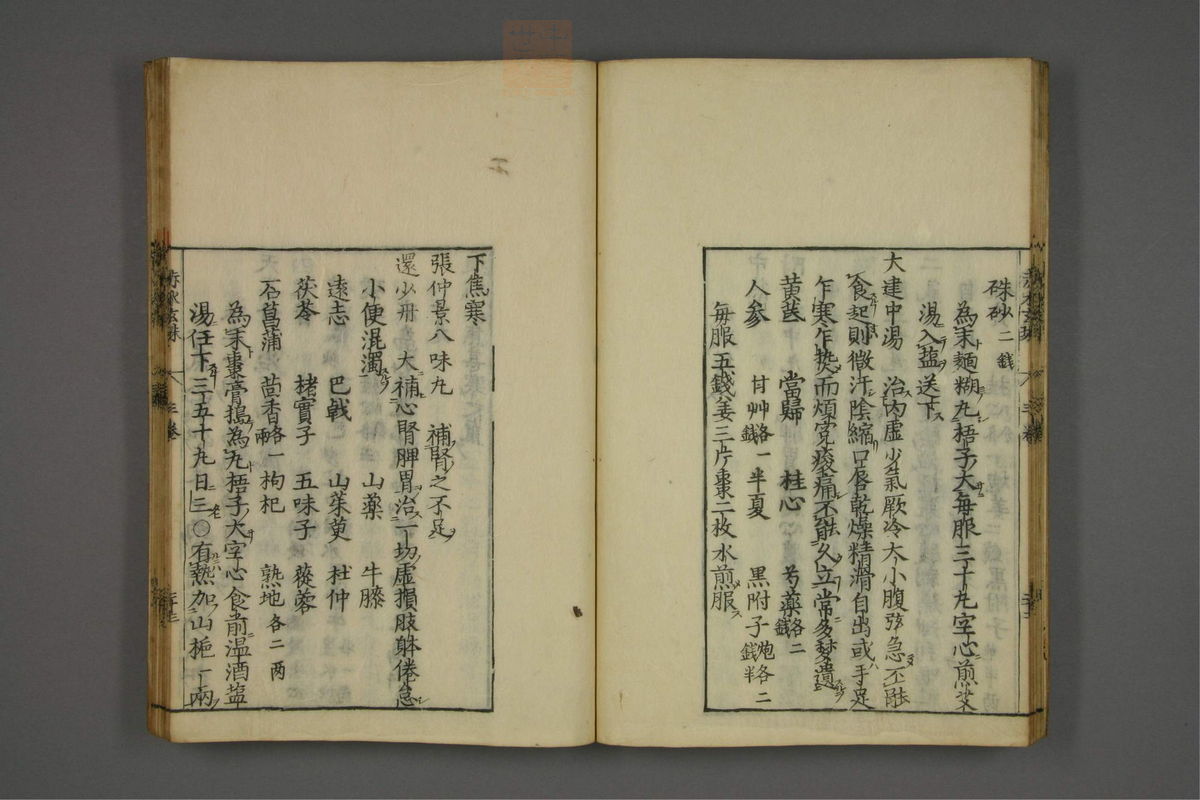 硃砂二錢
為末麵糊丸梧子大每服三十丸空心煎棗
湯入盐送下
大建中湯 治肉虚少氣厥冷大小腹弦急不能
食起則微汗陰縮口唇乾燥精滑自出或手足
乍寒乍热而煩寃痠痛不能久立常多夢遺
黄芪 當歸 桂心 芍藥各二錢
人参 甘艸各一錢 半夏 黒附子炮各二錢半
每服五錢姜三片棗二枚水煎服
下焦寒
張仲景八味丸 補腎之不足
還少丹 大補心腎脾胃治一切虚損肢躰倦怠
小便混濁 山藥 牛膝
遠志 巴戟 山茱萸 杜仲
茯苓 楮實子 五味子 蓯蓉
石菖浦 茴香各一兩 枸杞 熟地各二兩
為末棗膏搗為丸梧子大空心食前温酒盐
湯任下三五十丸日三○有熱加山梔一兩
赤水玄珠 三卷